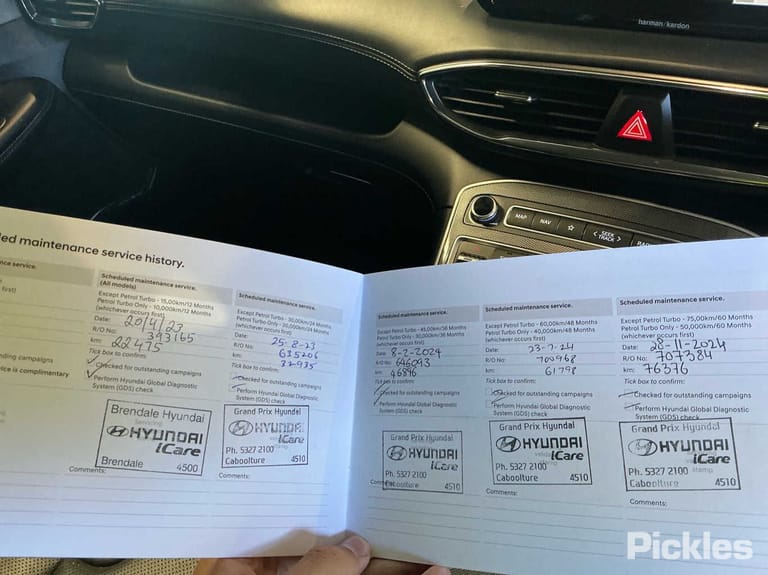 harman/kardon
MAP
NAV
SEEK
TRACK
RADIO
led maintenance service history.
nce service.
first)
mpaigns
ice is complimentary
Scheduled maintenance service.
(All models)
Except Petrol Turbo - 15,000km/12 Months
Petrol Turbo Only - 10,000km/12 Months
(whichever occurs first)
Date: 20/4/23
R/O No: 343165
km: 22475
Tick box to confirm:
Checked for outstanding campaigns
Perform Hyundai Global Diagnostic
System (GDS) check
Brendale Hyundai
HYUNDAI
iCare
Brendale 4500
Comments:
Scheduled maintenance service.
Except Petrol Turbo - 30,000km/24 Months
Petrol Turbo Only - 20,000km/24 Months
(whichever occurs first)
Date: 25-8-23
R/O No: 635206
km: 32935
Tick box to confirm:
Checked for outstanding campaigns
Perform Hyundai Global Diagnostic
System (GDS) check
Grand Prix Hyundai
HYUNDAI
iCare
Ph. 5327 2100
Caboolture 4510
Comments:
Scheduled maintenance service.
Except Petrol Turbo - 45,000km/36 Months
Petrol Turbo Only - 30,000km/36 Months
(whichever occurs first)
Date: 8-2-2024
R/O No: 646093
km: 46896
Tick box to confirm:
Checked for outstanding campaigns
Perform Hyundai Global Diagnostic
System (GDS) check
Grand Prix Hyundai
HYUNDAI
iCare
Ph. 5327 2100
Caboolture 4510
Scheduled maintenance service.
Except Petrol Turbo - 60,000km/48 Months
Petrol Turbo Only - 40,000km/48 Months
(whichever occurs first)
Date: 23-7-24
R/O No: 700968
km: 61798
Tick box to confirm:
Checked for outstanding campaigns
Perform Hyundai Global Diagnostic
System (GDS) check
Grand Prix Hyundai
HYUNDAI
iCare
Ph. 5327 2100
Caboolture 4510
Comments:
Scheduled maintenance service.
Except Petrol Turbo - 75,000km/60 Months
Petrol Turbo Only - 50,000km/60 Months
(whichever occurs first)
Date: 28-11-2024
R/O No: 707384
km: 76376
Tick box to confirm:
Checked for outstanding campaigns
Perform Hyundai Global Diagnostic
System (GDS) check
Grand Prix Hyundai
HYUNDAI
iCare
Ph. 5327 2100
Caboolture 4510
Comments:
Pickles